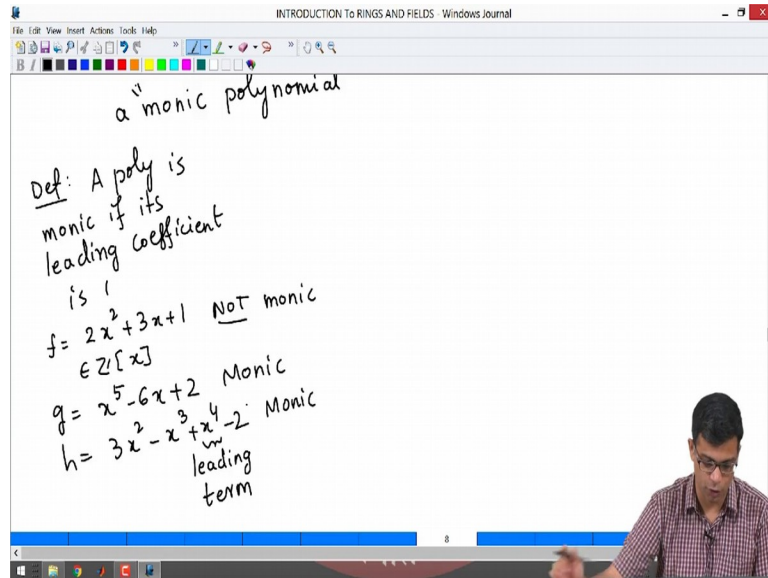 INTRODUCTION To RINGS AND FIELDS - Windows Journal
File Edit View Insert Actions Tools Help
B I
a "monic polynomial
Def: A poly is
monic if its
leading coefficient
is 1
f = 2x² + 3x + 1 NOT monic
∈ ℤ[x]
g = x⁵ - 6x + 2 Monic
h = 3x² - x³ + x⁴ - 2 Monic
leading
term
8